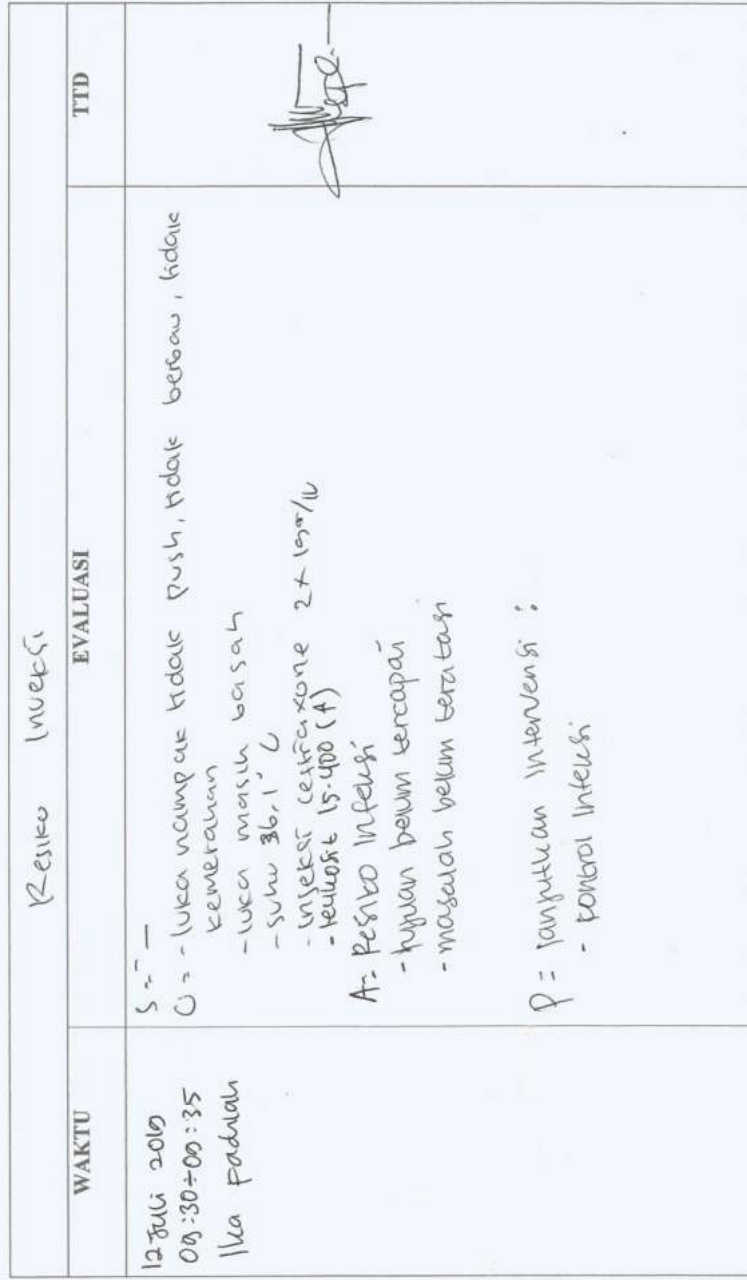 Resiko Inveksi
WAKTU
EVALUASI
TTD
12 Juli 2019
09:30-09:35
Ika padilah
S = -
O = - luka nampak tidak push, tidak berbau, tidak
kemerahan
- luka masih basah
- suhu 36,1°C
- Injeksi ceftriaxone 2x1gr/IV
- leukosit 15.400 (↑)
A = Resiko Infeksi
- tujuan belum tercapai
- masalah belum teratasi
P = lanjutkan Intervensi :
- kontrol Infeksi